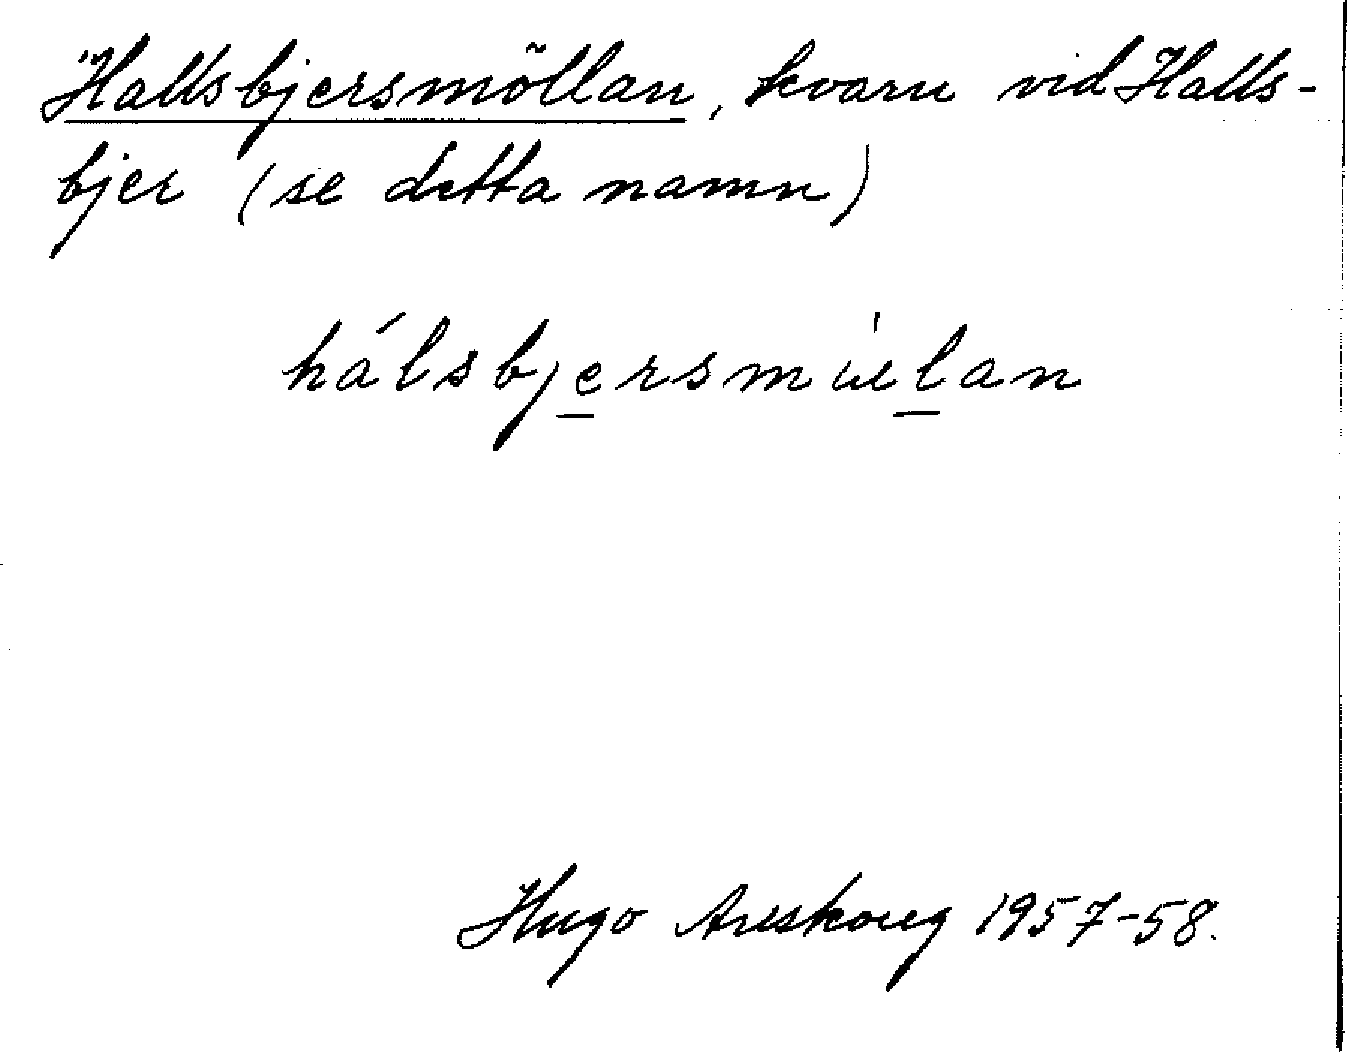 Hallsbjersmöllan, kvarn vid Halls-
bjer (se detta namn)
hálsbjersmúelan
Hugo Areskoug 1957-58.